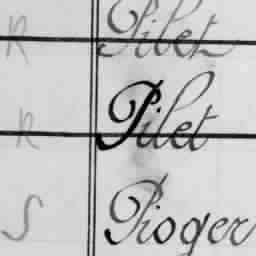 R Pilet
R Pilet
S Pioger